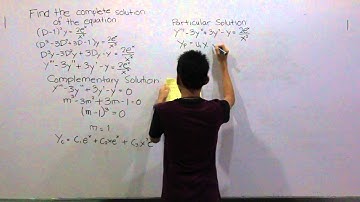 Find the complete solution
of the equation
(D-1)³y = 2eˣ/x³
(D³-3D²+3D-1)y = 2eˣ/x³
D³y-3D²y+3Dy-y = 2eˣ/x³
y'''-3y''+3y'-y = 2eˣ/x³
Complementary Solution
y'''-3y''+3y'-y=0
m³-3m²+3m-1=0
(m-1)³=0
m=1
Yc = C₁eˣ + C₂xeˣ + C₃x²eˣ
Particular Solution
y'''-3y''+3y'-y = 2eˣ/x³